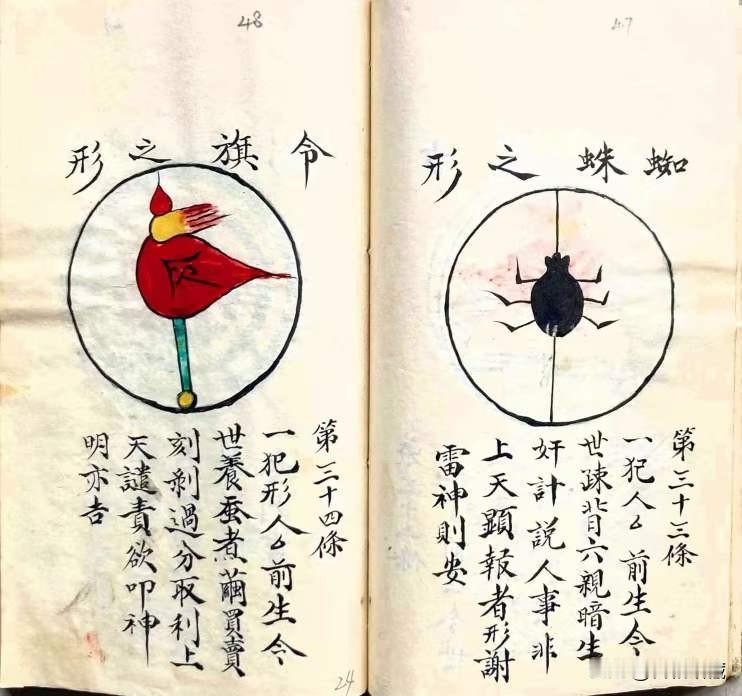 47
蜘蛛之形
第三十三條
一犯人厶前生今
世踈背六親暗生
奸計説人事非
上天顯報者形謝
雷神則安
48
令旗之形
第三十四條
一犯形人厶前生今
世養蚕煮繭買賣
刻剥過分取利上
天譴責欲叩神
明亦吉
24